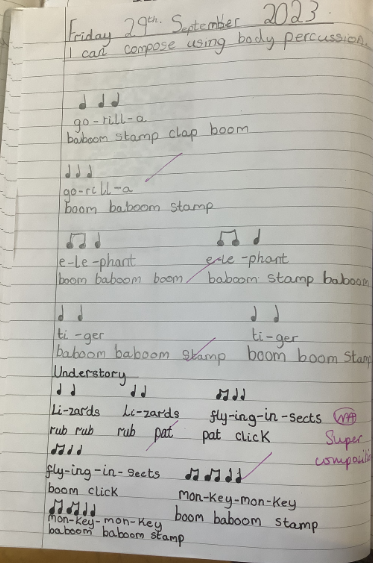 Friday 29th. September 2023.
I can compose using body percussion.
go-rill-a
baboom stamp clap boom
go-rill-a
boom baboom stamp
e-le-phant e-le-phant
boom baboom boom baboom stamp baboom
ti-ger ti-ger
baboom baboom stamp boom boom stamp
Understory
Li-zards Li-zards fly-ing-in-sects
rub rub rub pat pat click
Super
fly-ing-in-sects
boom click
mon-key-mon-key
boom baboom stamp
mon-key-mon-key
baboom baboom stamp